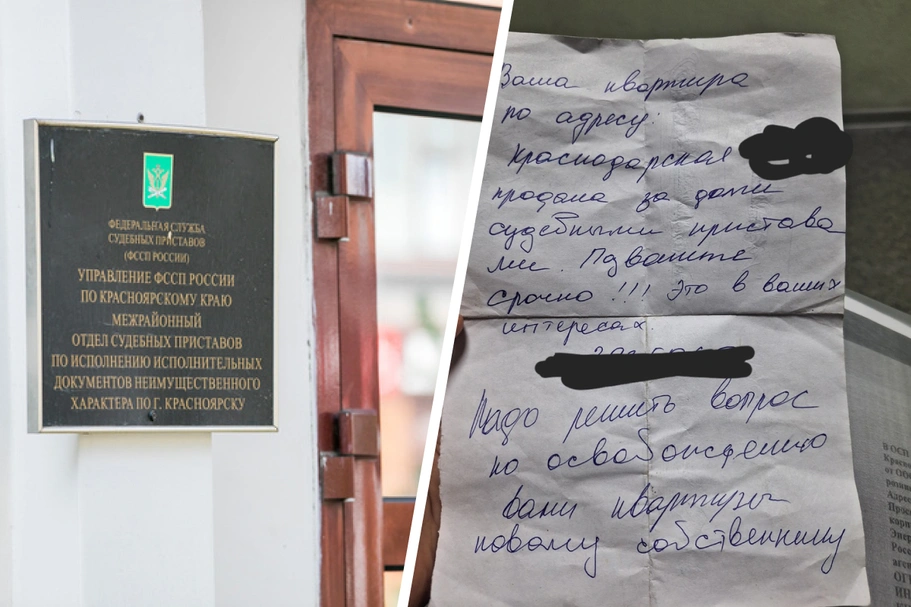 ФЕДЕРАЛЬНАЯ СЛУЖБА
СУДЕБНЫХ ПРИСТАВОВ
(ФССП РОССИИ)
УПРАВЛЕНИЕ ФССП РОССИИ
ПО КРАСНОЯРСКОМУ КРАЮ
МЕЖРАЙОННЫЙ
ОТДЕЛ СУДЕБНЫХ ПРИСТАВОВ
ПО ИСПОЛНЕНИЮ ИСПОЛНИТЕЛЬНЫХ
ДОКУМЕНТОВ НЕИМУЩЕСТВЕННОГО
ХАРАКТЕРА ПО Г. КРАСНОЯРСКУ
Ваша квартира
по адресу:
Краснодарская
продана за долги
судебными пристава
ми. Позвоните
срочно!!! Это в ваших
интересах
Надо решить вопрос
по освобождению
вами квартиры
новому собственнику
В ОСП